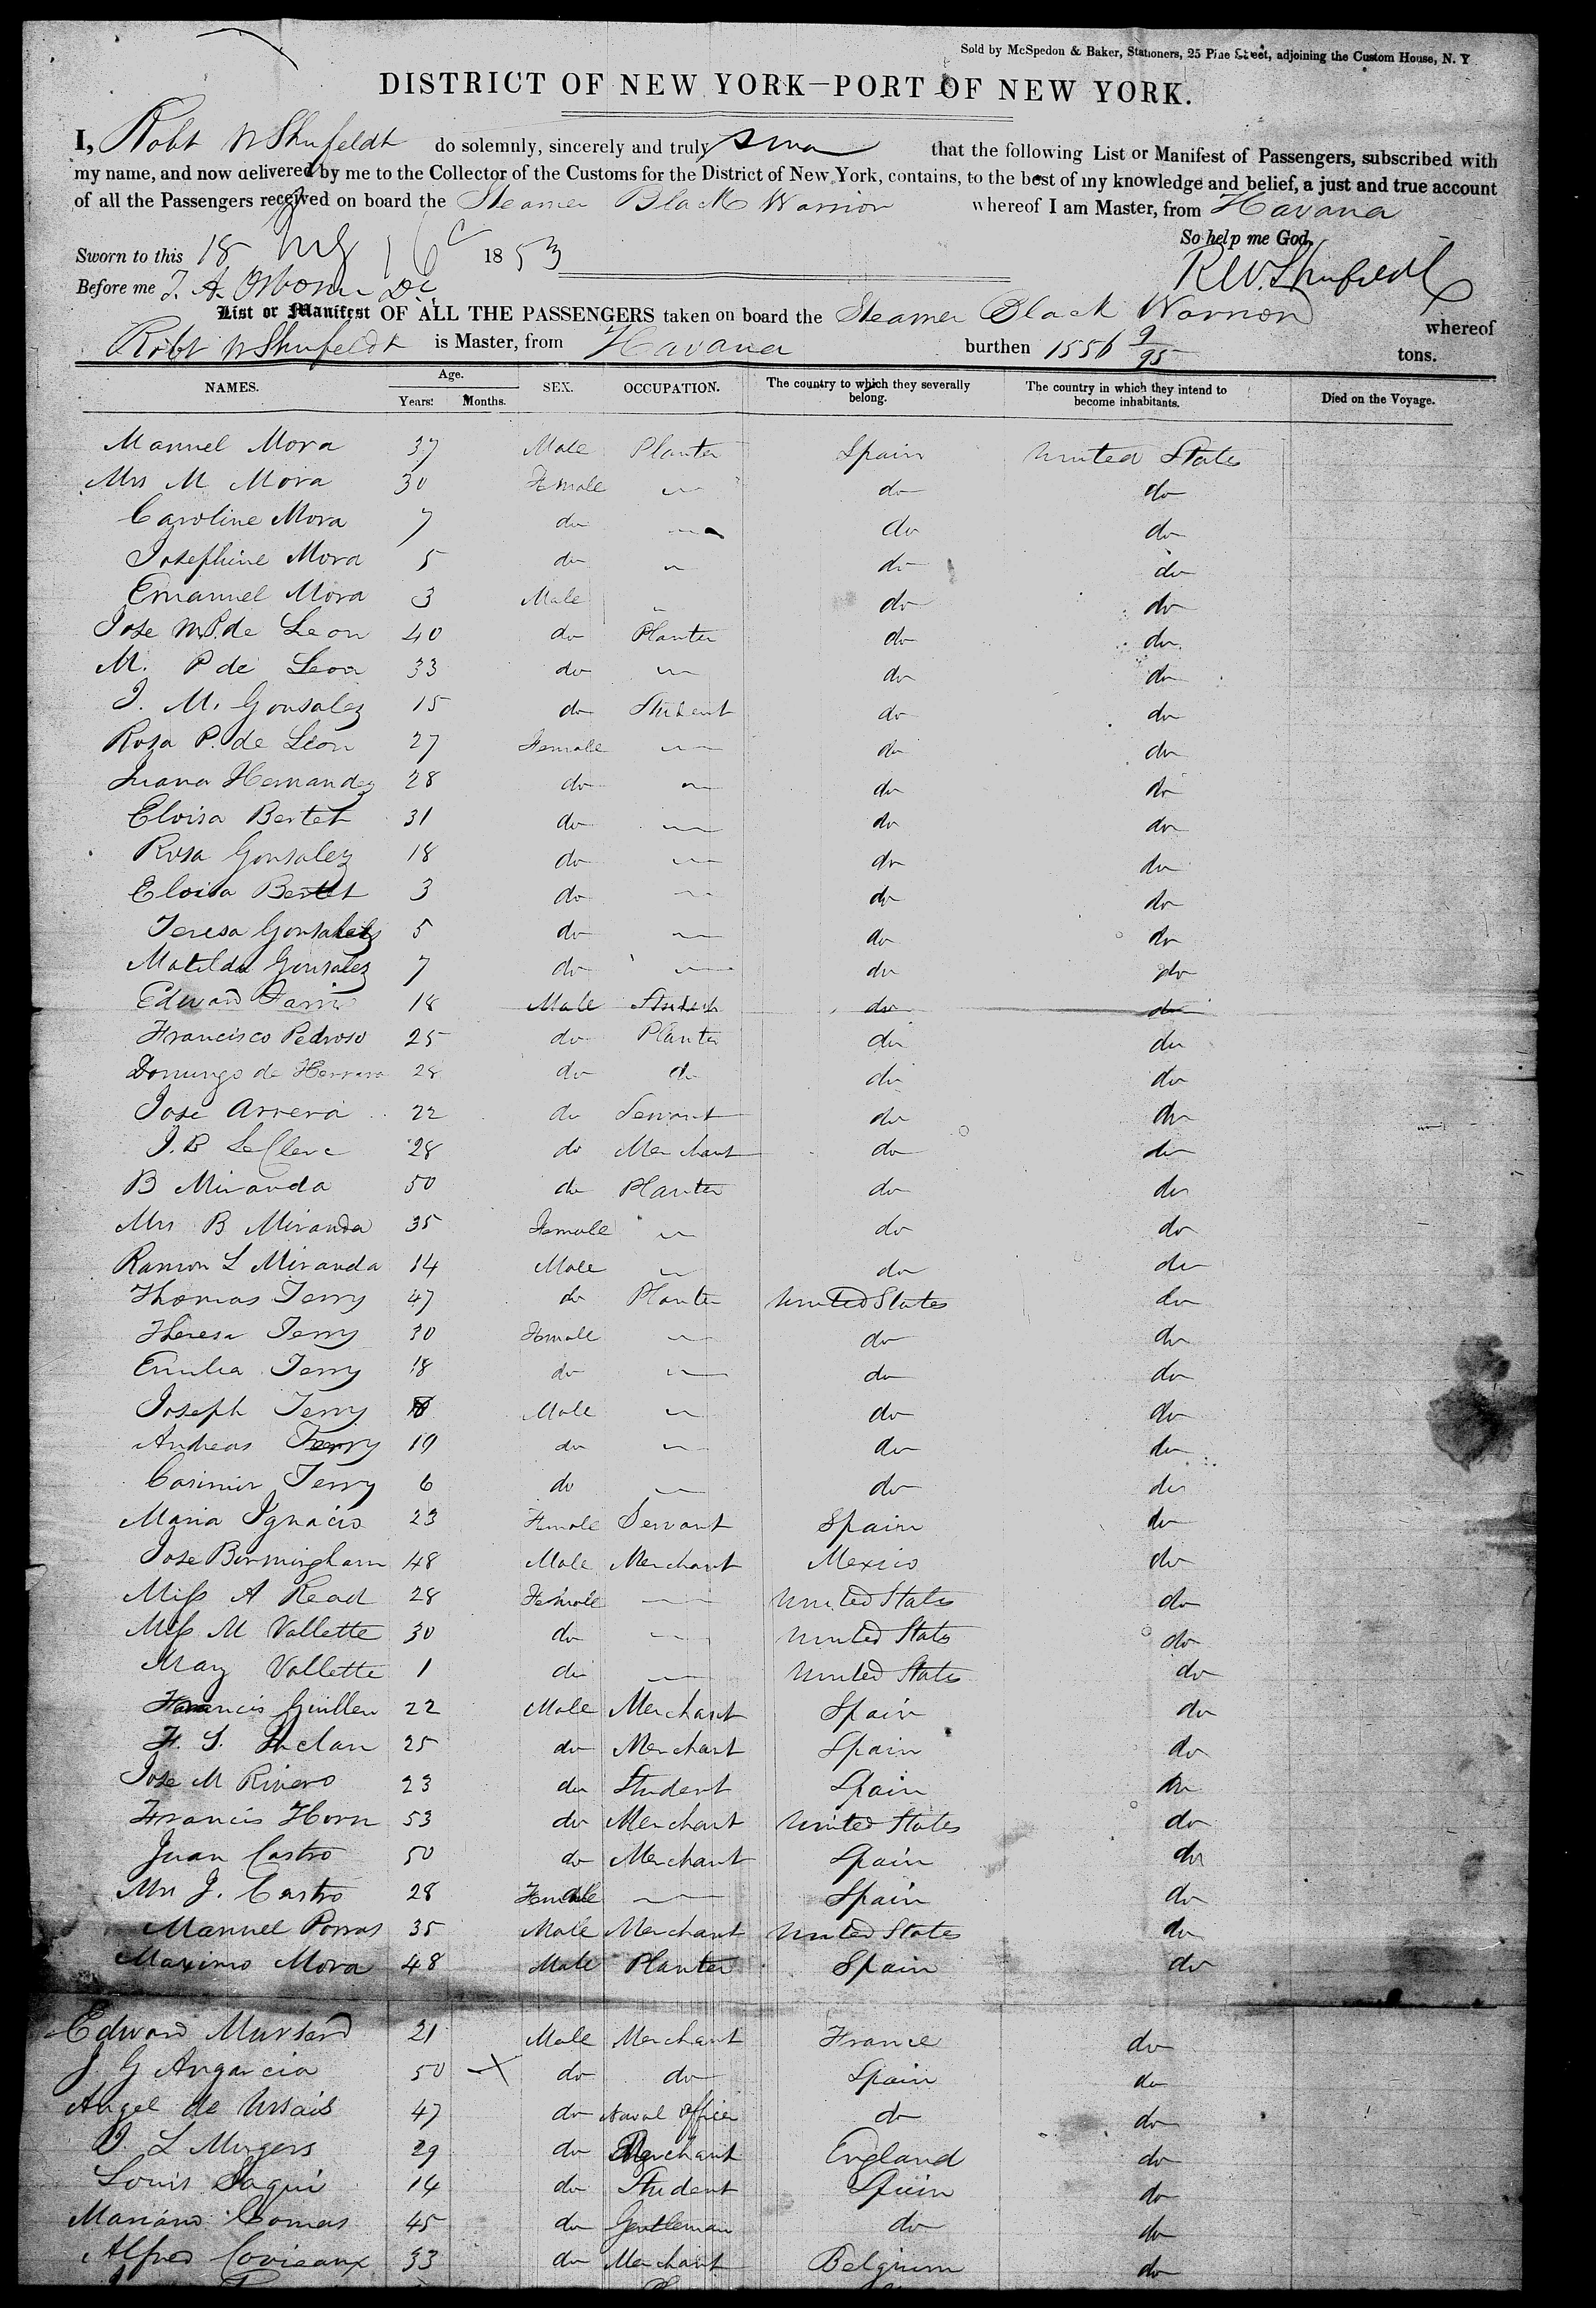 Sold by McSpedon & Baker, Stationers, 25 Pine Street, adjoining the Custom House, N. Y
DISTRICT OF NEW YORK—PORT OF NEW YORK.
I, Robt W Shufeldt do solemnly, sincerely and truly swear that the following List or Manifest of Passengers, subscribed with
my name, and now delivered by me to the Collector of the Customs for the District of New York, contains, to the best of my knowledge and belief, a just and true account
of all the Passengers received on board the Steamer Black Warrior whereof I am Master, from Havana
So help me God,
Sworn to this 18 1853
R.W. Shufeldt
Before me J. A. Osborne
List or Manifest OF ALL THE PASSENGERS taken on board the Steamer Black Warrior whereof
Robt W Shufeldt is Master, from Havana burthen 1556 9/95 tons.
NAMES. Age. Years. Months. SEX. OCCUPATION. The country to which they severally belong. The country in which they intend to become inhabitants. Died on the Voyage.
Manuel Mora 37 Male Planter Spain United States
Mrs M Mora 30 Female " do do
Caroline Mora 7 do " do do
Josephine Mora 5 do " do do
Emanuel Mora 3 Male " do do
Jose M P. de Leon 40 do Planter do do
M. P de Leon 33 do " do do
J. M. Gonsalez 15 do Student do do
Rosa P. de Leon 27 Female " do do
Juana Hernandez 28 do " do do
Eloisa Bertet 31 do " do do
Rosa Gonsalez 18 do " do do
Eloisa Bertet 3 do " do do
Teresa Gonsalez 5 do " do do
Matilda Gonsalez 7 do " do do
Edward 18 Male Student do do
Francisco Pedroso 25 do Planter do do
Domingo de Herrera 28 do do do do
Jose Arrera 22 do Servant do do
J. B LeClerc 28 do Merchant do do
B Miranda 50 do Planter do do
Mrs B Miranda 35 Female " do do
Ramon L Miranda 14 Male " do do
Thomas Terry 47 do Planter United States do
Theresa Terry 30 Female " do do
Emilia Terry 18 do " do do
Joseph Terry Male " do do
Andreas Terry 19 do " do do
Casimir Terry 6 do " do do
Maria Ignacio 23 Female Servant Spain do
Jose Birmingham 48 Male Merchant Mexico do
Miss A Read 28 Female " United States do
Miss M Vallette 30 do " United States do
Mary Vallette 1 do " United States do
Francis Guillen 22 Male Merchant Spain do
F. S. 25 do Merchant Spain do
Jose M Rivero 23 do Student Spain do
Francis Horn 53 do Merchant United States do
Juan Castro 50 do Merchant Spain do
Mrs J. Castro 28 Female " Spain do
Manuel Porras 35 Male Merchant United States do
Maximo Mora 48 Male Planter Spain do
Edward 21 Male Merchant France do
J G Angarcia 50 X do do Spain do
Angel de 47 do Naval Officer do do
L 29 do Merchant England do
Louis 14 do Student Spain do
Mariano Comas 45 do Gentleman do do
Alfred 33 do Merchant Belgium do